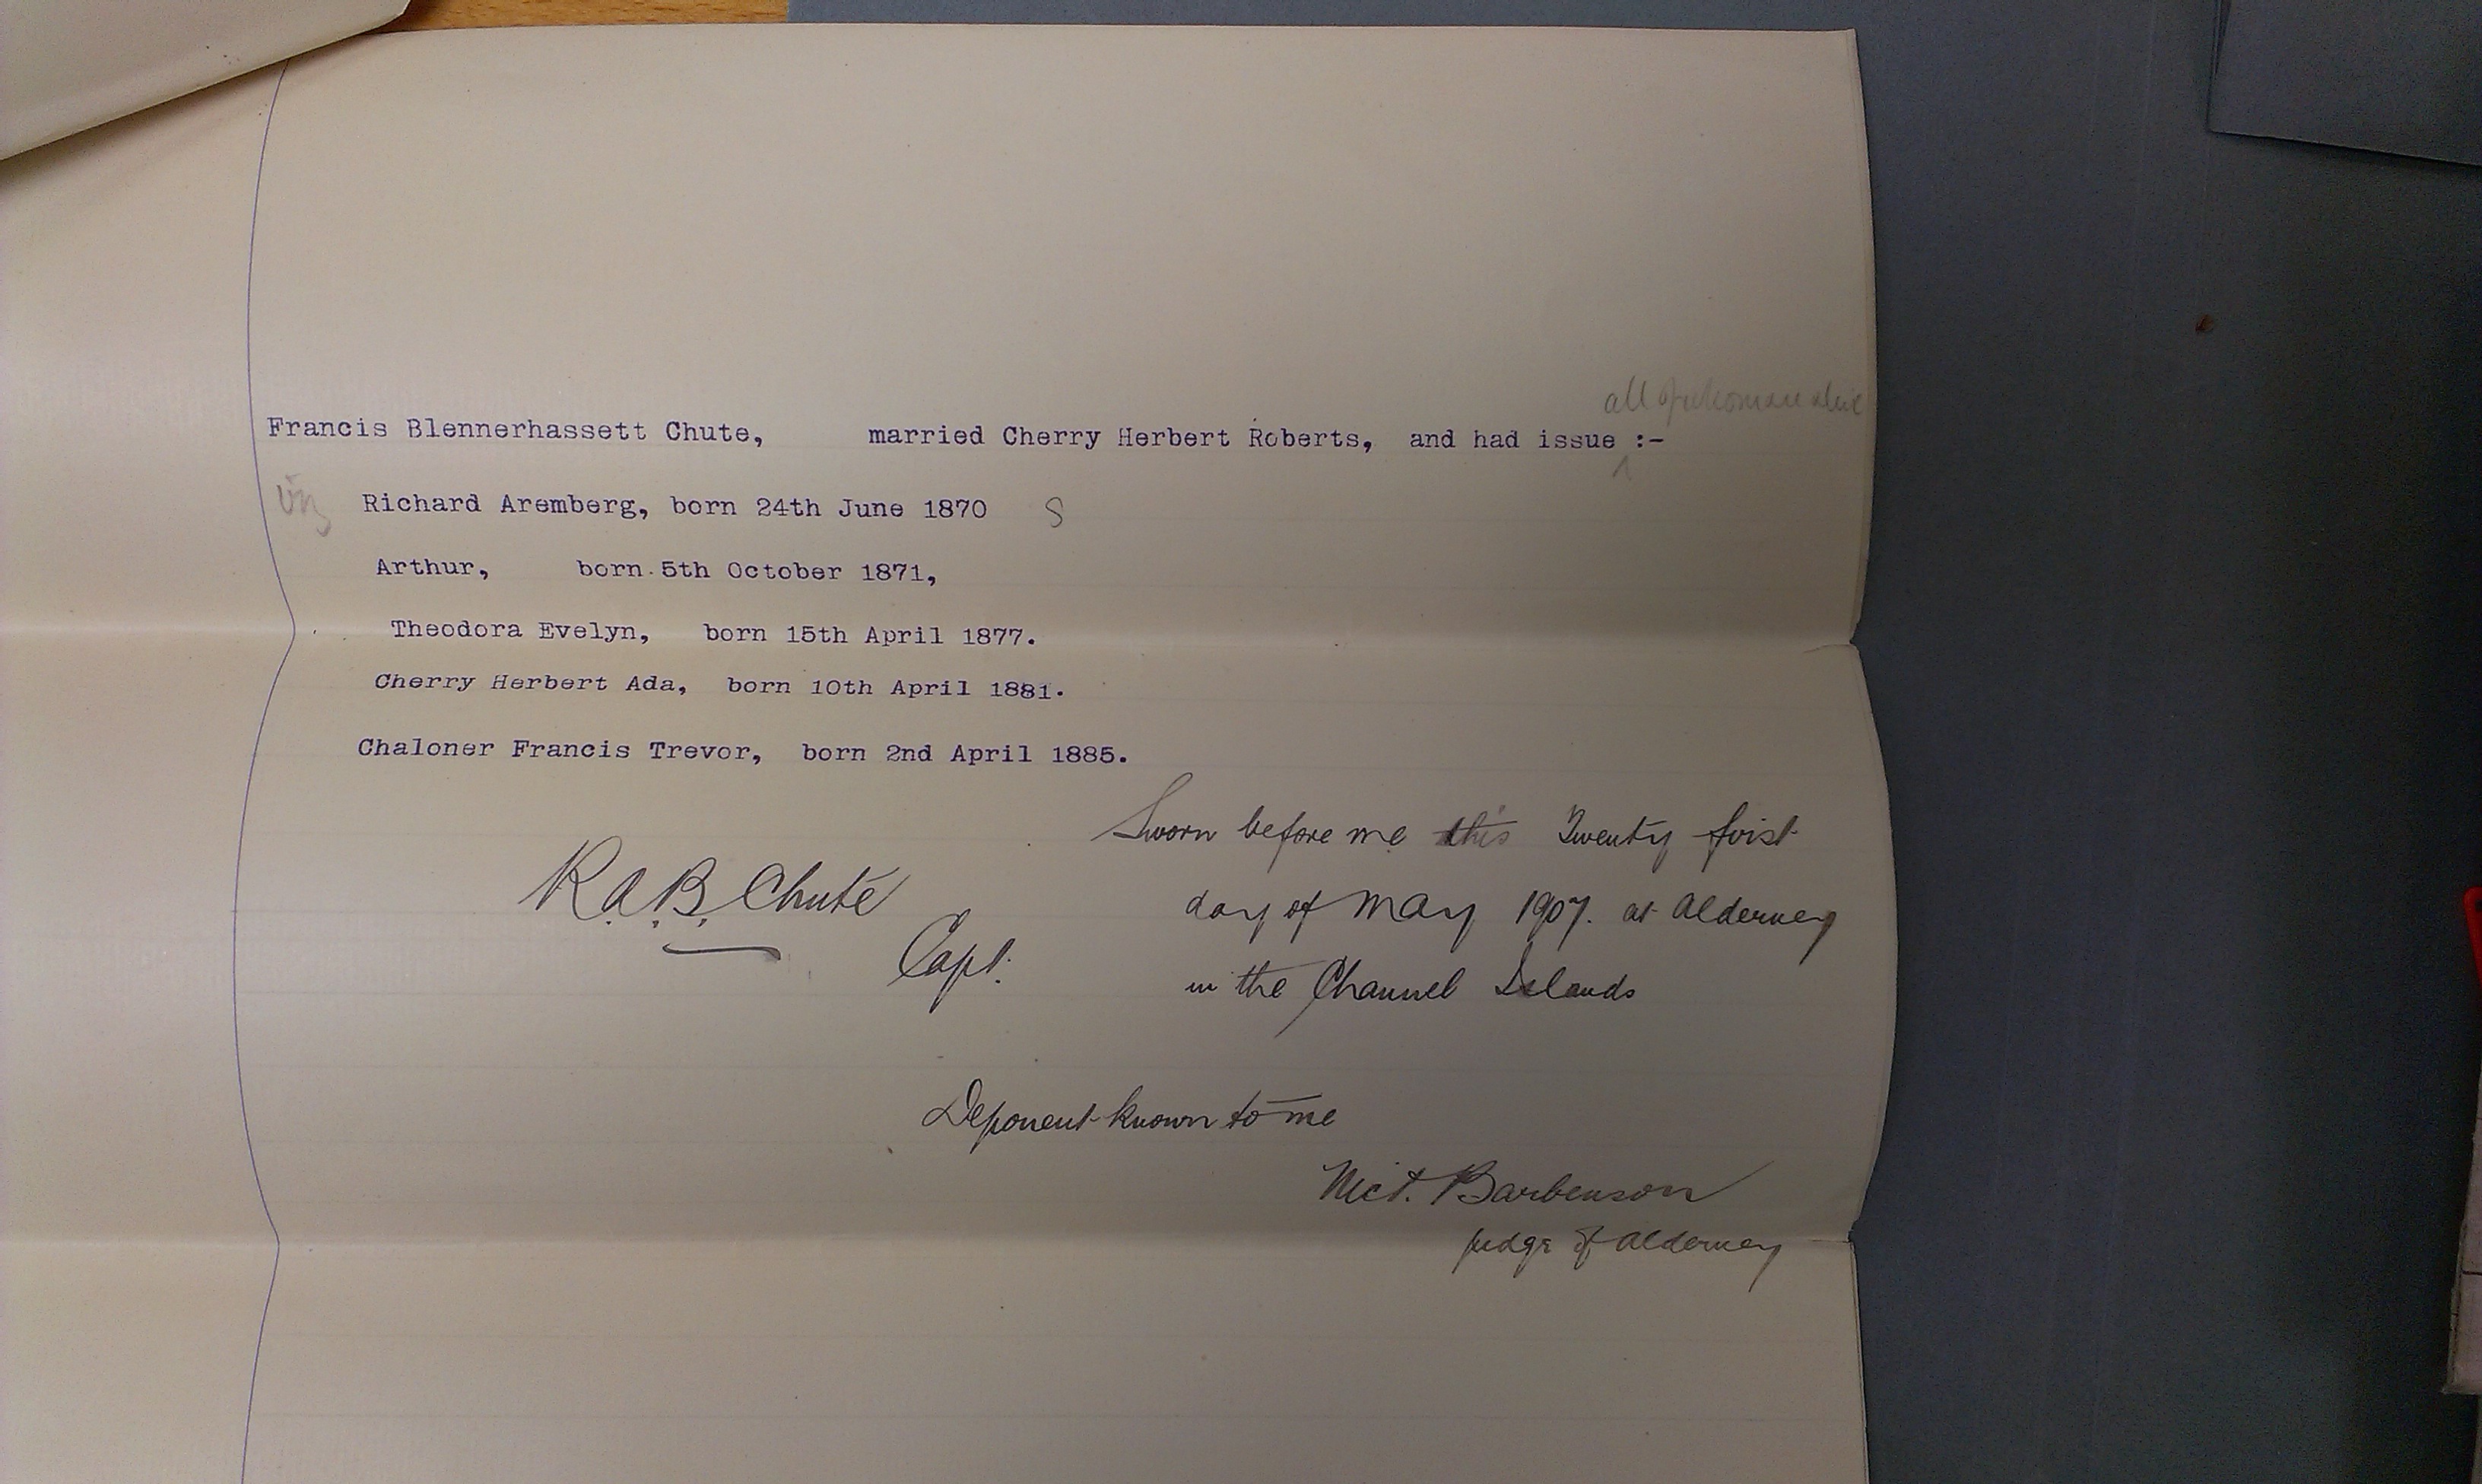 all of whom are alive
Francis Blennerhassett Chute, married Cherry Herbert Roberts, and had issue :-
viz Richard Aremberg, born 24th June 1870 S
Arthur, born 5th October 1871,
Theodora Evelyn, born 15th April 1877.
Cherry Herbert Ada, born 10th April 1881.
Chaloner Francis Trevor, born 2nd April 1885.
Sworn before me this Twenty first
R.A.B. Chute
day of May 1907. at Alderney
Capt.
in the Channel Islands
Deponent known to me
Barbenson
Judge of Alderney